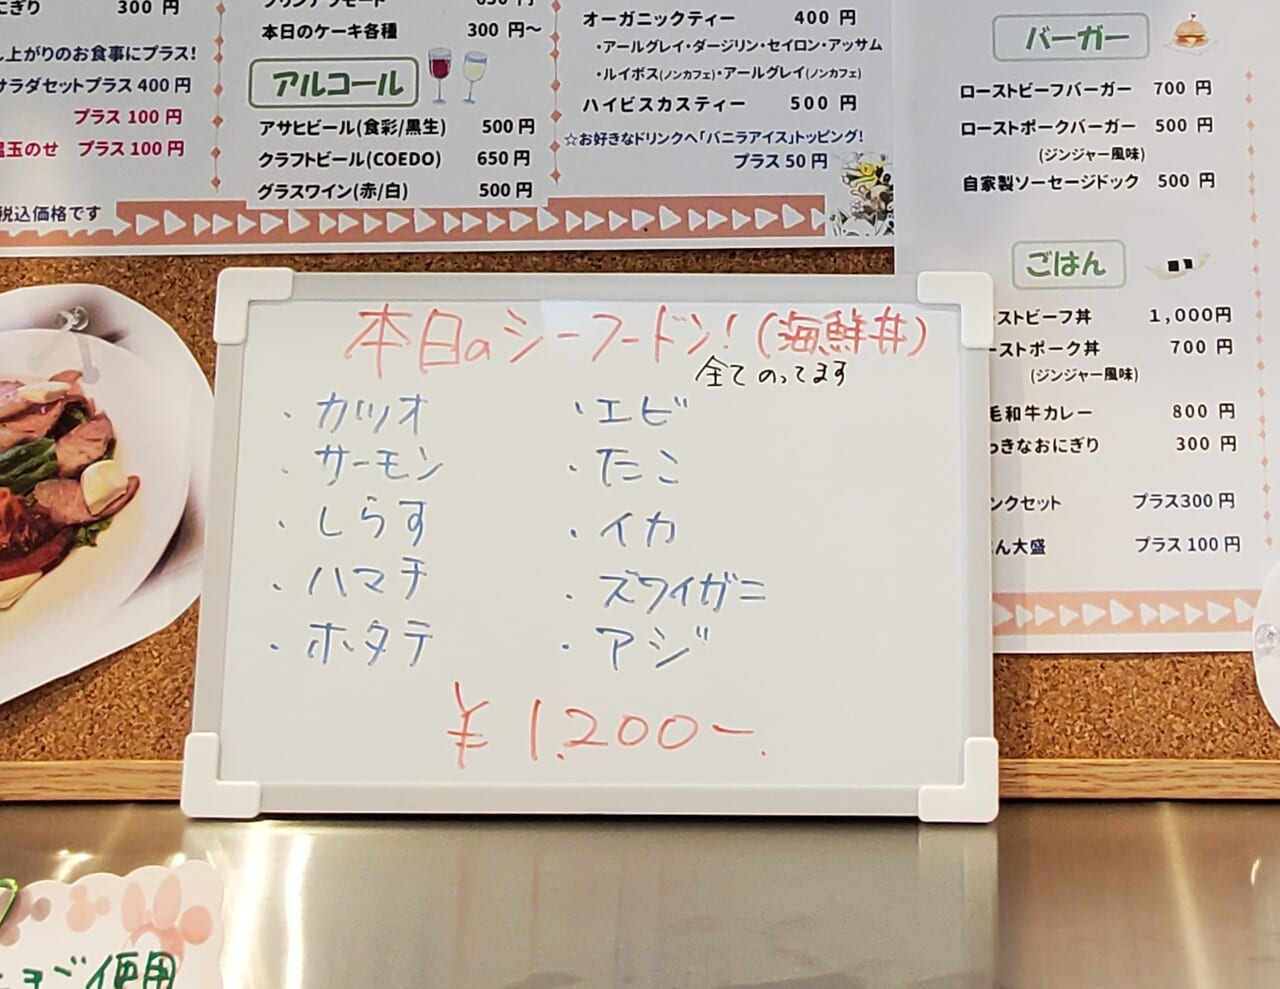 にぎり 300 円
し上がりのお食事にプラス!
サラダセットプラス 400 円
プラス 100 円
温玉のせ プラス 100 円
税込価格です
本日のケーキ各種 300 円〜
アルコール
アサヒビール(食彩/黒生) 500 円
クラフトビール(COEDO) 650 円
グラスワイン(赤/白) 500 円
オーガニックティー 400 円
・アールグレイ・ダージリン・セイロン・アッサム
・ルイボス(ノンカフェ)・アールグレイ(ノンカフェ)
ハイビスカスティー 500 円
☆お好きなドリンクへ「バニラアイス」トッピング!
プラス 50 円
バーガー
ローストビーフバーガー 700 円
ローストポークバーガー 500 円
(ジンジャー風味)
自家製ソーセージドック 500 円
ごはん
ーストビーフ丼 1,000円
ーストポーク丼 700 円
(ジンジャー風味)
毛和牛カレー 800 円
っきなおにぎり 300 円
ンクセット プラス300 円
ん大盛 プラス 100 円
本日のシーフードン!(海鮮丼)
全てのってます
・カツオ
・サーモン
・しらす
・ハマチ
・ホタテ
・エビ
・たこ
・イカ
・ズワイガニ
・アジ
¥1,200-.
ョご使用